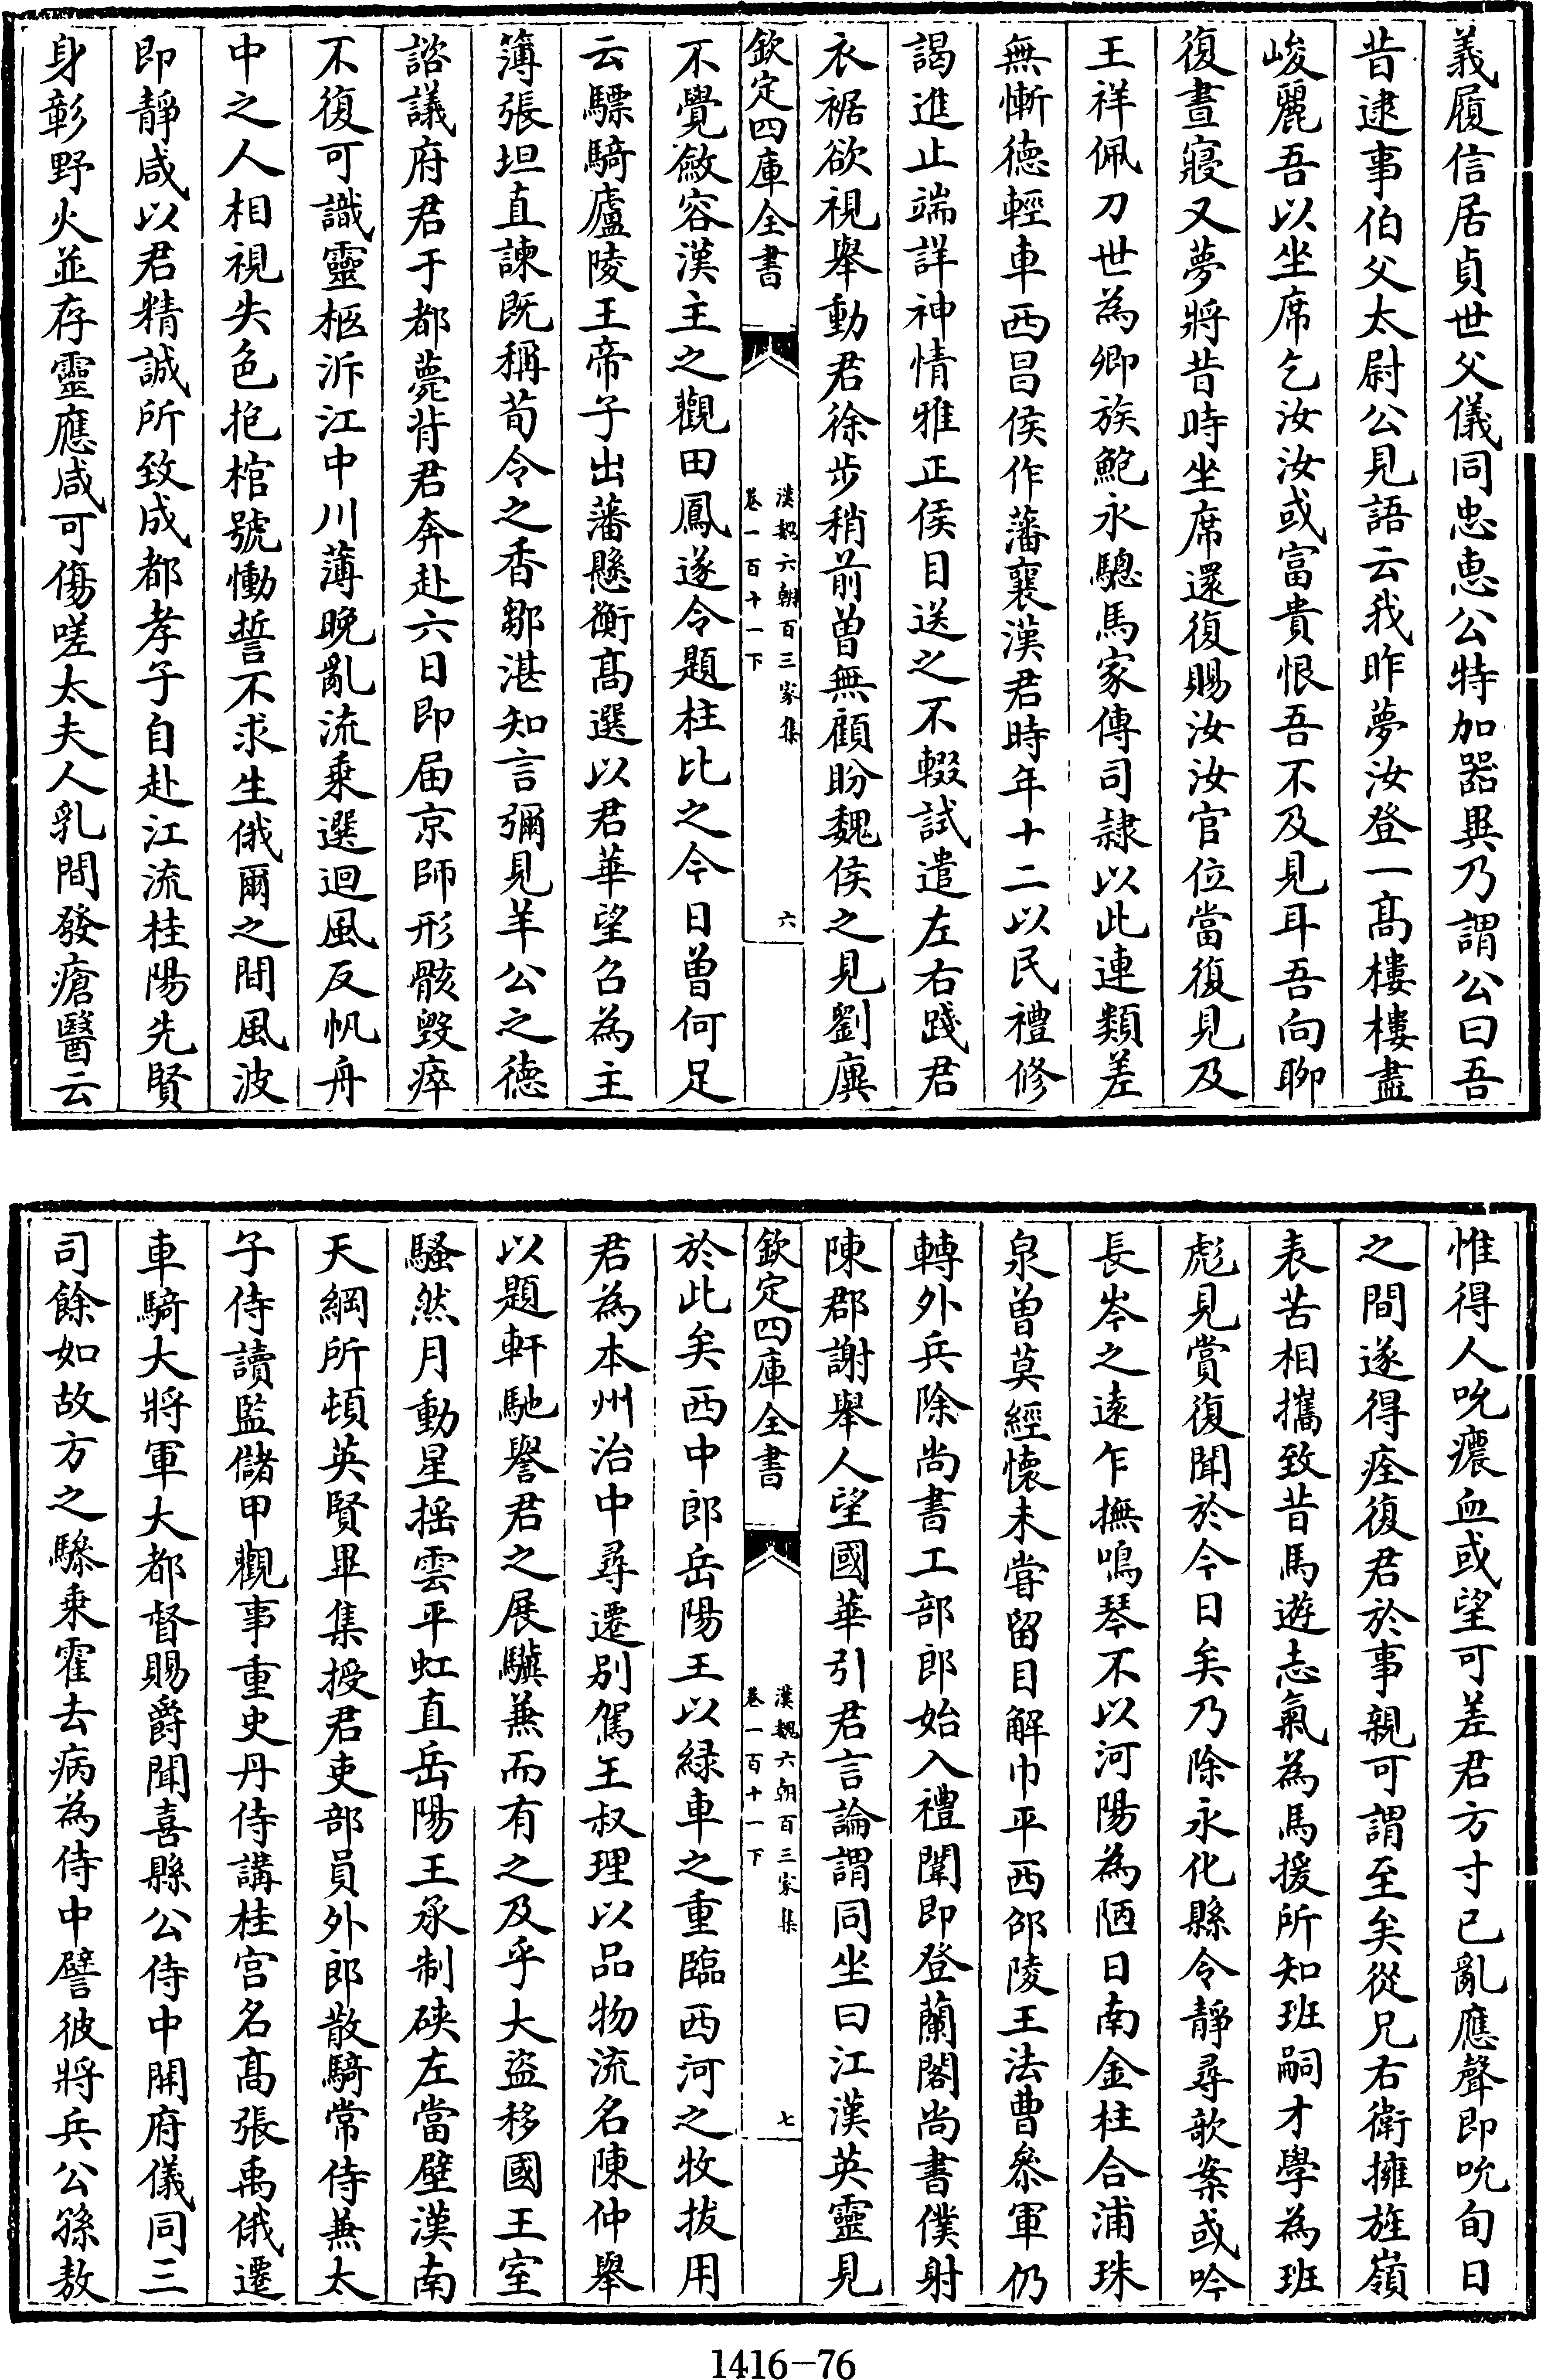 義履信居貞世父儀同忠恵公特加器異乃謂公曰吾
昔逮事伯父太尉公見語云我昨夢汝登一髙樓樓盡
峻麗吾以坐席乞汝汝或富貴恨吾不及見耳吾向聊
復晝寢又夢將昔時坐席還復賜汝汝官位當復見及
王祥佩刀世為卿族鮑永驄馬家傳司隷以此連類差
無慚徳輕車西昌侯作藩襄漢君時年十二以民禮修
謁進止端詳神情雅正侯目送之不輟試遣左右踐君
衣裾欲視舉動君徐步稍前曽無顧盼魏侯之見劉廙
欽定四庫全書
漢魏六朝百三家集
卷一百十一下
六
不覺斂容漢主之觀田鳳遂令題柱比之今日曽何足
云驃騎廬陵王帝子出藩懸衡髙選以君華望召為主
簿張坦直諫既稱荀令之香鄒湛知言彌見羊公之徳
諮議府君于都薨背君奔赴六日即届京師形骸毀瘁
不復可識靈柩泝江中川薄晩亂流乘選迴風反帆舟
中之人相視失色抱棺號慟誓不求生俄爾之間風波
即靜咸以君精誠所致成都孝子自赴江流桂陽先賢
身彰野火並存靈應咸可傷嗟太夫人乳間發瘡醫云
惟得人吮癑血或望可差君方寸已亂應聲即吮旬日
之間遂得痊復君於事親可謂至矣從兄右衛擁旌嶺
表苦相攜致昔馬遊志氣為馬援所知班嗣才學為班
彪見賞復聞於今日矣乃除永化縣令靜尋歌案或吟
長岑之逺乍撫鳴琴不以河陽為陋日南金柱合浦珠
泉曽莫經懐未甞留目解巾平西邵陵王法曹叅軍仍
轉外兵除尚書工部郎始入禮闈即登蘭閣尚書僕射
陳郡謝舉人望國華引君言論謂同坐曰江漢英靈見
欽定四庫全書
漢魏六朝百三家集
卷一百十一下
七
於此矣西中郎岳陽王以緑車之重臨西河之牧拔用
君為本州治中尋遷别駕王叔理以品物流名陳仲舉
以題軒馳譽君之展驥兼而有之及乎大盜移國王室
騷然月動星揺雲平虹直岳陽王承制硤左當壁漢南
天綱所頓英賢畢集授君吏部員外郎散騎常侍兼太
子侍讀監儲甲觀事重史丹侍講桂宫名髙張禹俄遷
車騎大將軍大都督賜爵聞喜縣公侍中開府儀同三
司餘如故方之驂乘霍去病為侍中譬彼將兵公孫敖
1416-76